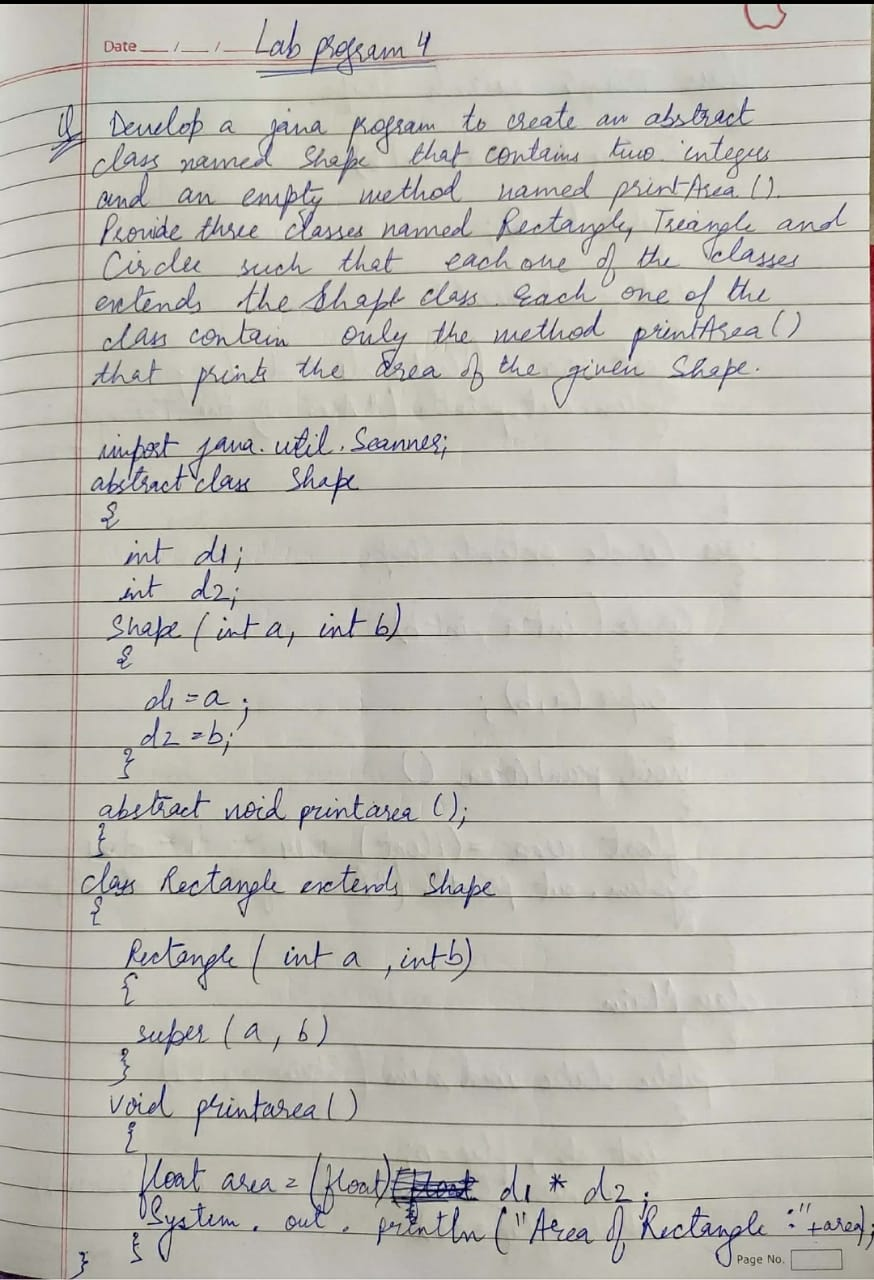 Date __/__/__ Lab program 4
Q Develop a java program to create an abstract
class named Shape that contains two integers
and an empty method named printArea ().
Provide three classes named Rectangle, Triangle and
Circle such that each one of the classes
extends the Shape class. Each one of the
class contain only the method printArea ()
that prints the area of the given Shape.
import java.util.Scanner;
abstract class Shape
{
int d1;
int d2;
Shape (int a, int b)
{
d1 = a;
d2 = b;
}
abstract void printarea ();
}
class Rectangle extends Shape
{
Rectangle ( int a , int b)
{
super (a, b)
}
void printarea ()
{
float area = (float) d1 * d2;
System.out.println ("Area of Rectangle :"+area);
}
}
Page No.